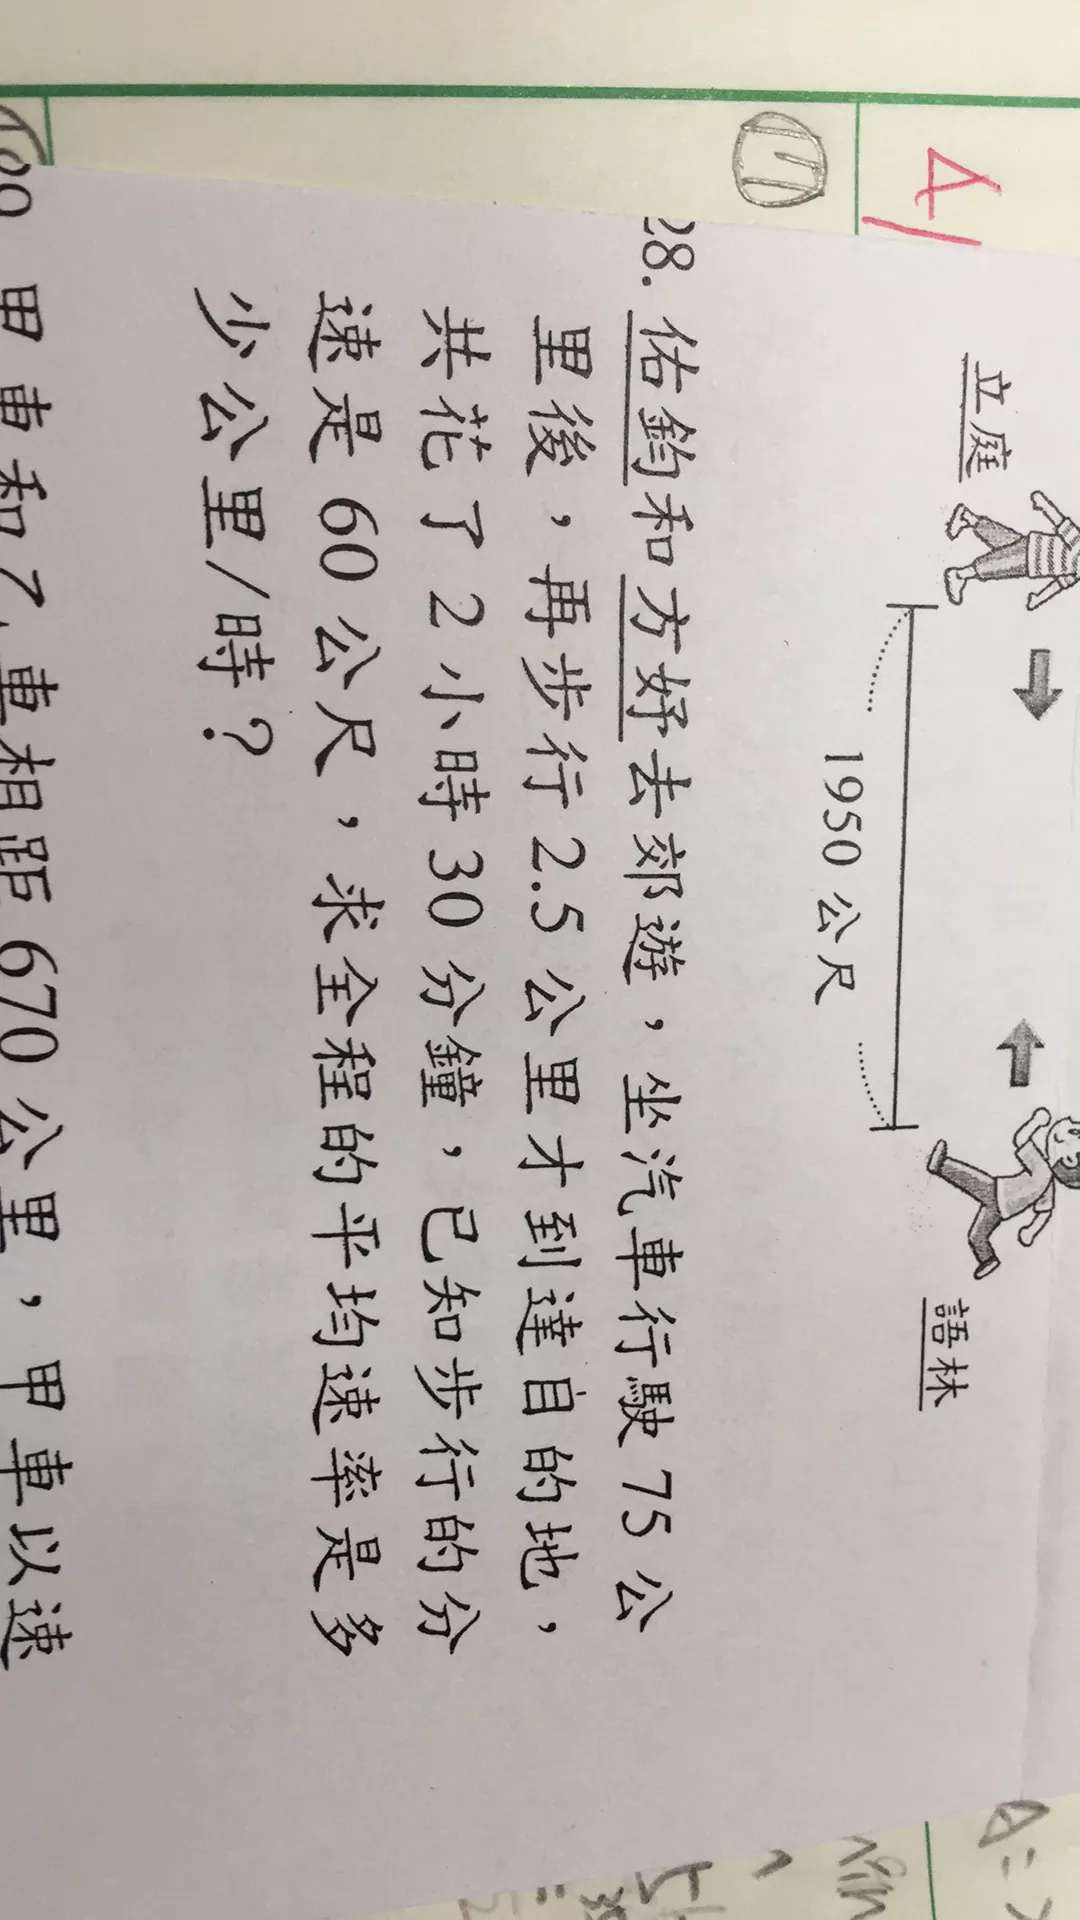 立庭
語林
1950 公尺
28. 佑鈞和方妤去郊遊，坐汽車行駛 75 公
里後，再步行 2.5 公里才到達目的地，
共花了 2 小時 30 分鐘，已知步行的分
速是 60 公尺，求全程的平均速率是多
少公里/時？
甲車和乙車相距 670 公里，甲車以速